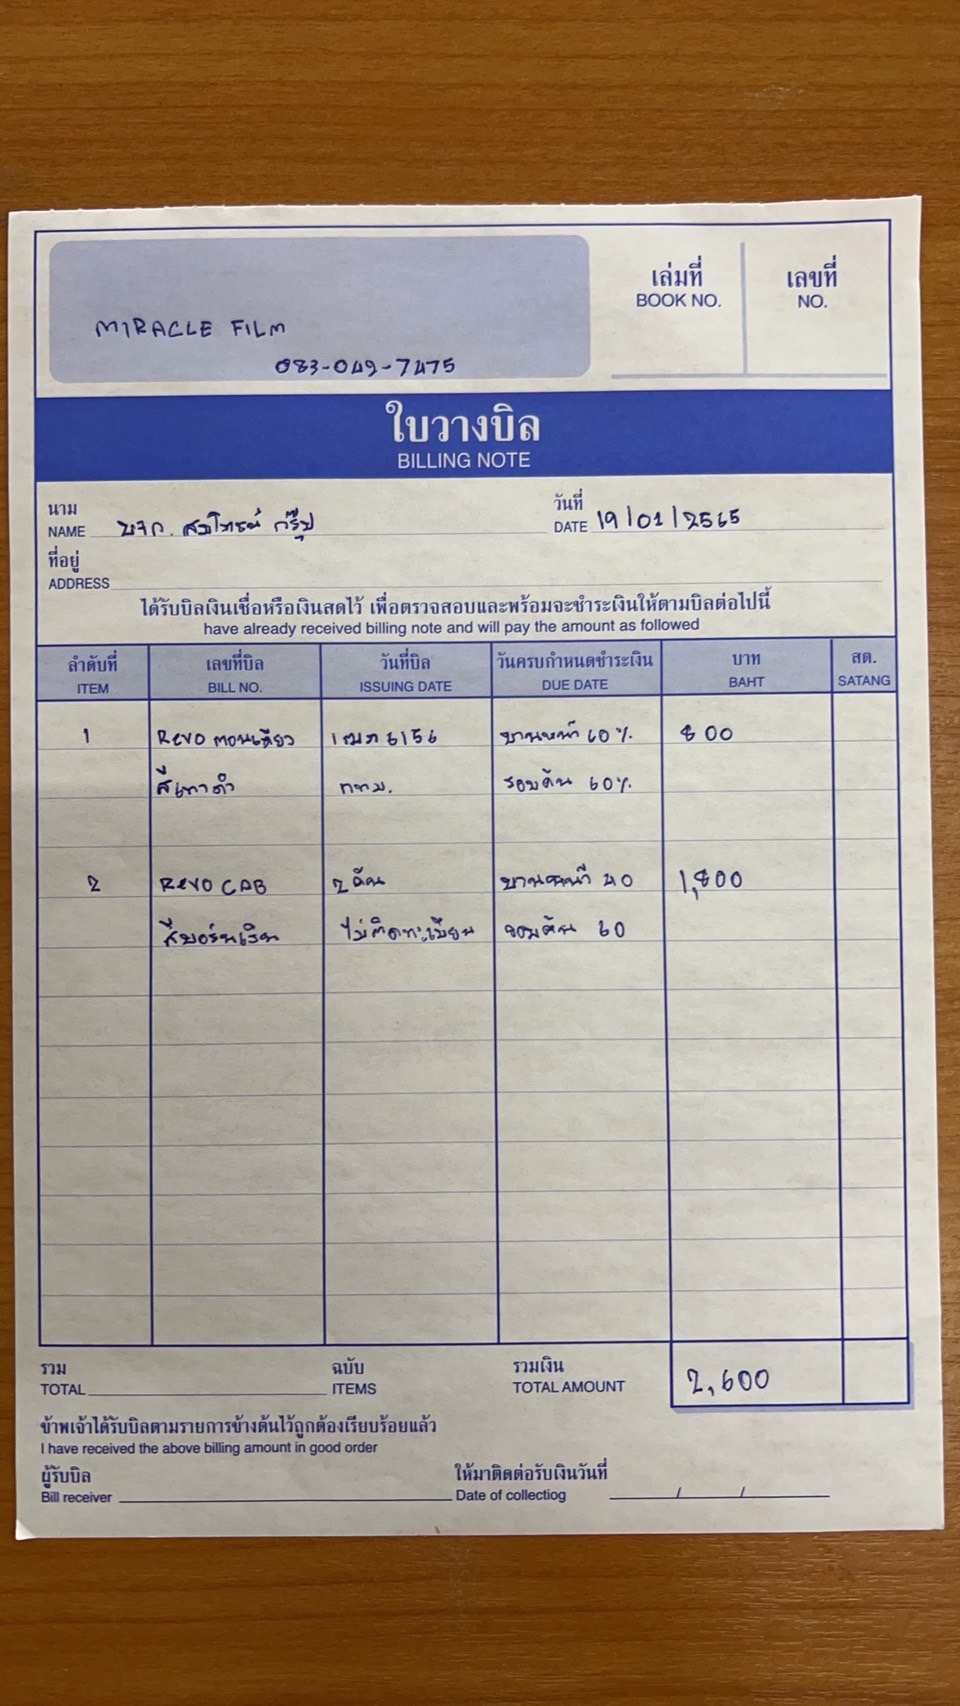 MIRACLE FILM
083-049-7475
เล่มที่
BOOK NO.
เลขที่
NO.
ใบวางบิล
BILLING NOTE
นาม
NAME หจก. สมโภชน์ กรุ๊ป
วันที่
DATE 19/01/2565
ที่อยู่
ADDRESS
ได้รับบิลเงินเชื่อหรือเงินสดไว้ เพื่อตรวจสอบและพร้อมจะชำระเงินให้ตามบิลต่อไปนี้
have already received billing note and will pay the amount as followed
ลำดับที่ เลขที่บิล วันที่บิล วันครบกำหนดชำระเงิน บาท สต.
ITEM BILL NO. ISSUING DATE DUE DATE BAHT SATANG
1 Revo ตอนเดียว 6156 บานหน้า 60% 800
สีเทาดำ กทม. รอบคัน 60%
2 Revo CAB 2 คัน บานหน้า 40 1,800
สีบอร์นเงิน ไม่ติดทะเบียน รอบคัน 60
รวม
TOTAL
ฉบับ
ITEMS
รวมเงิน
TOTAL AMOUNT
2,600
ข้าพเจ้าได้รับบิลตามรายการข้างต้นไว้ถูกต้องเรียบร้อยแล้ว
I have received the above billing amount in good order
ผู้รับบิล
Bill receiver
ให้มาติดต่อรับเงินวันที่
Date of collectiog / /